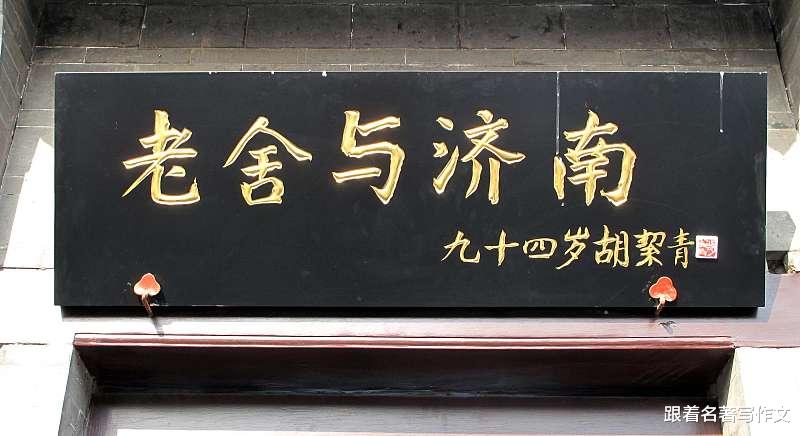 老舍与济南
九十四岁胡絜青
跟着名著写作文